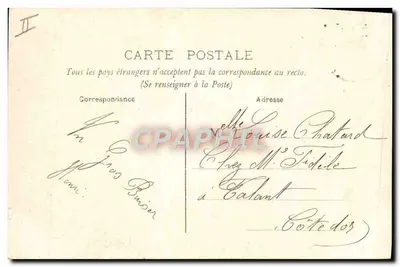 II
CARTE POSTALE
Tous les pays étrangers n'acceptent pas la correspondance au recto.
(Se renseigner à la Poste)
Correspondance
Adresse
Un
Gros Baiser
Henri
Velle Louise Chatard
Chez Mr Fidile
à Talant
Côte dor